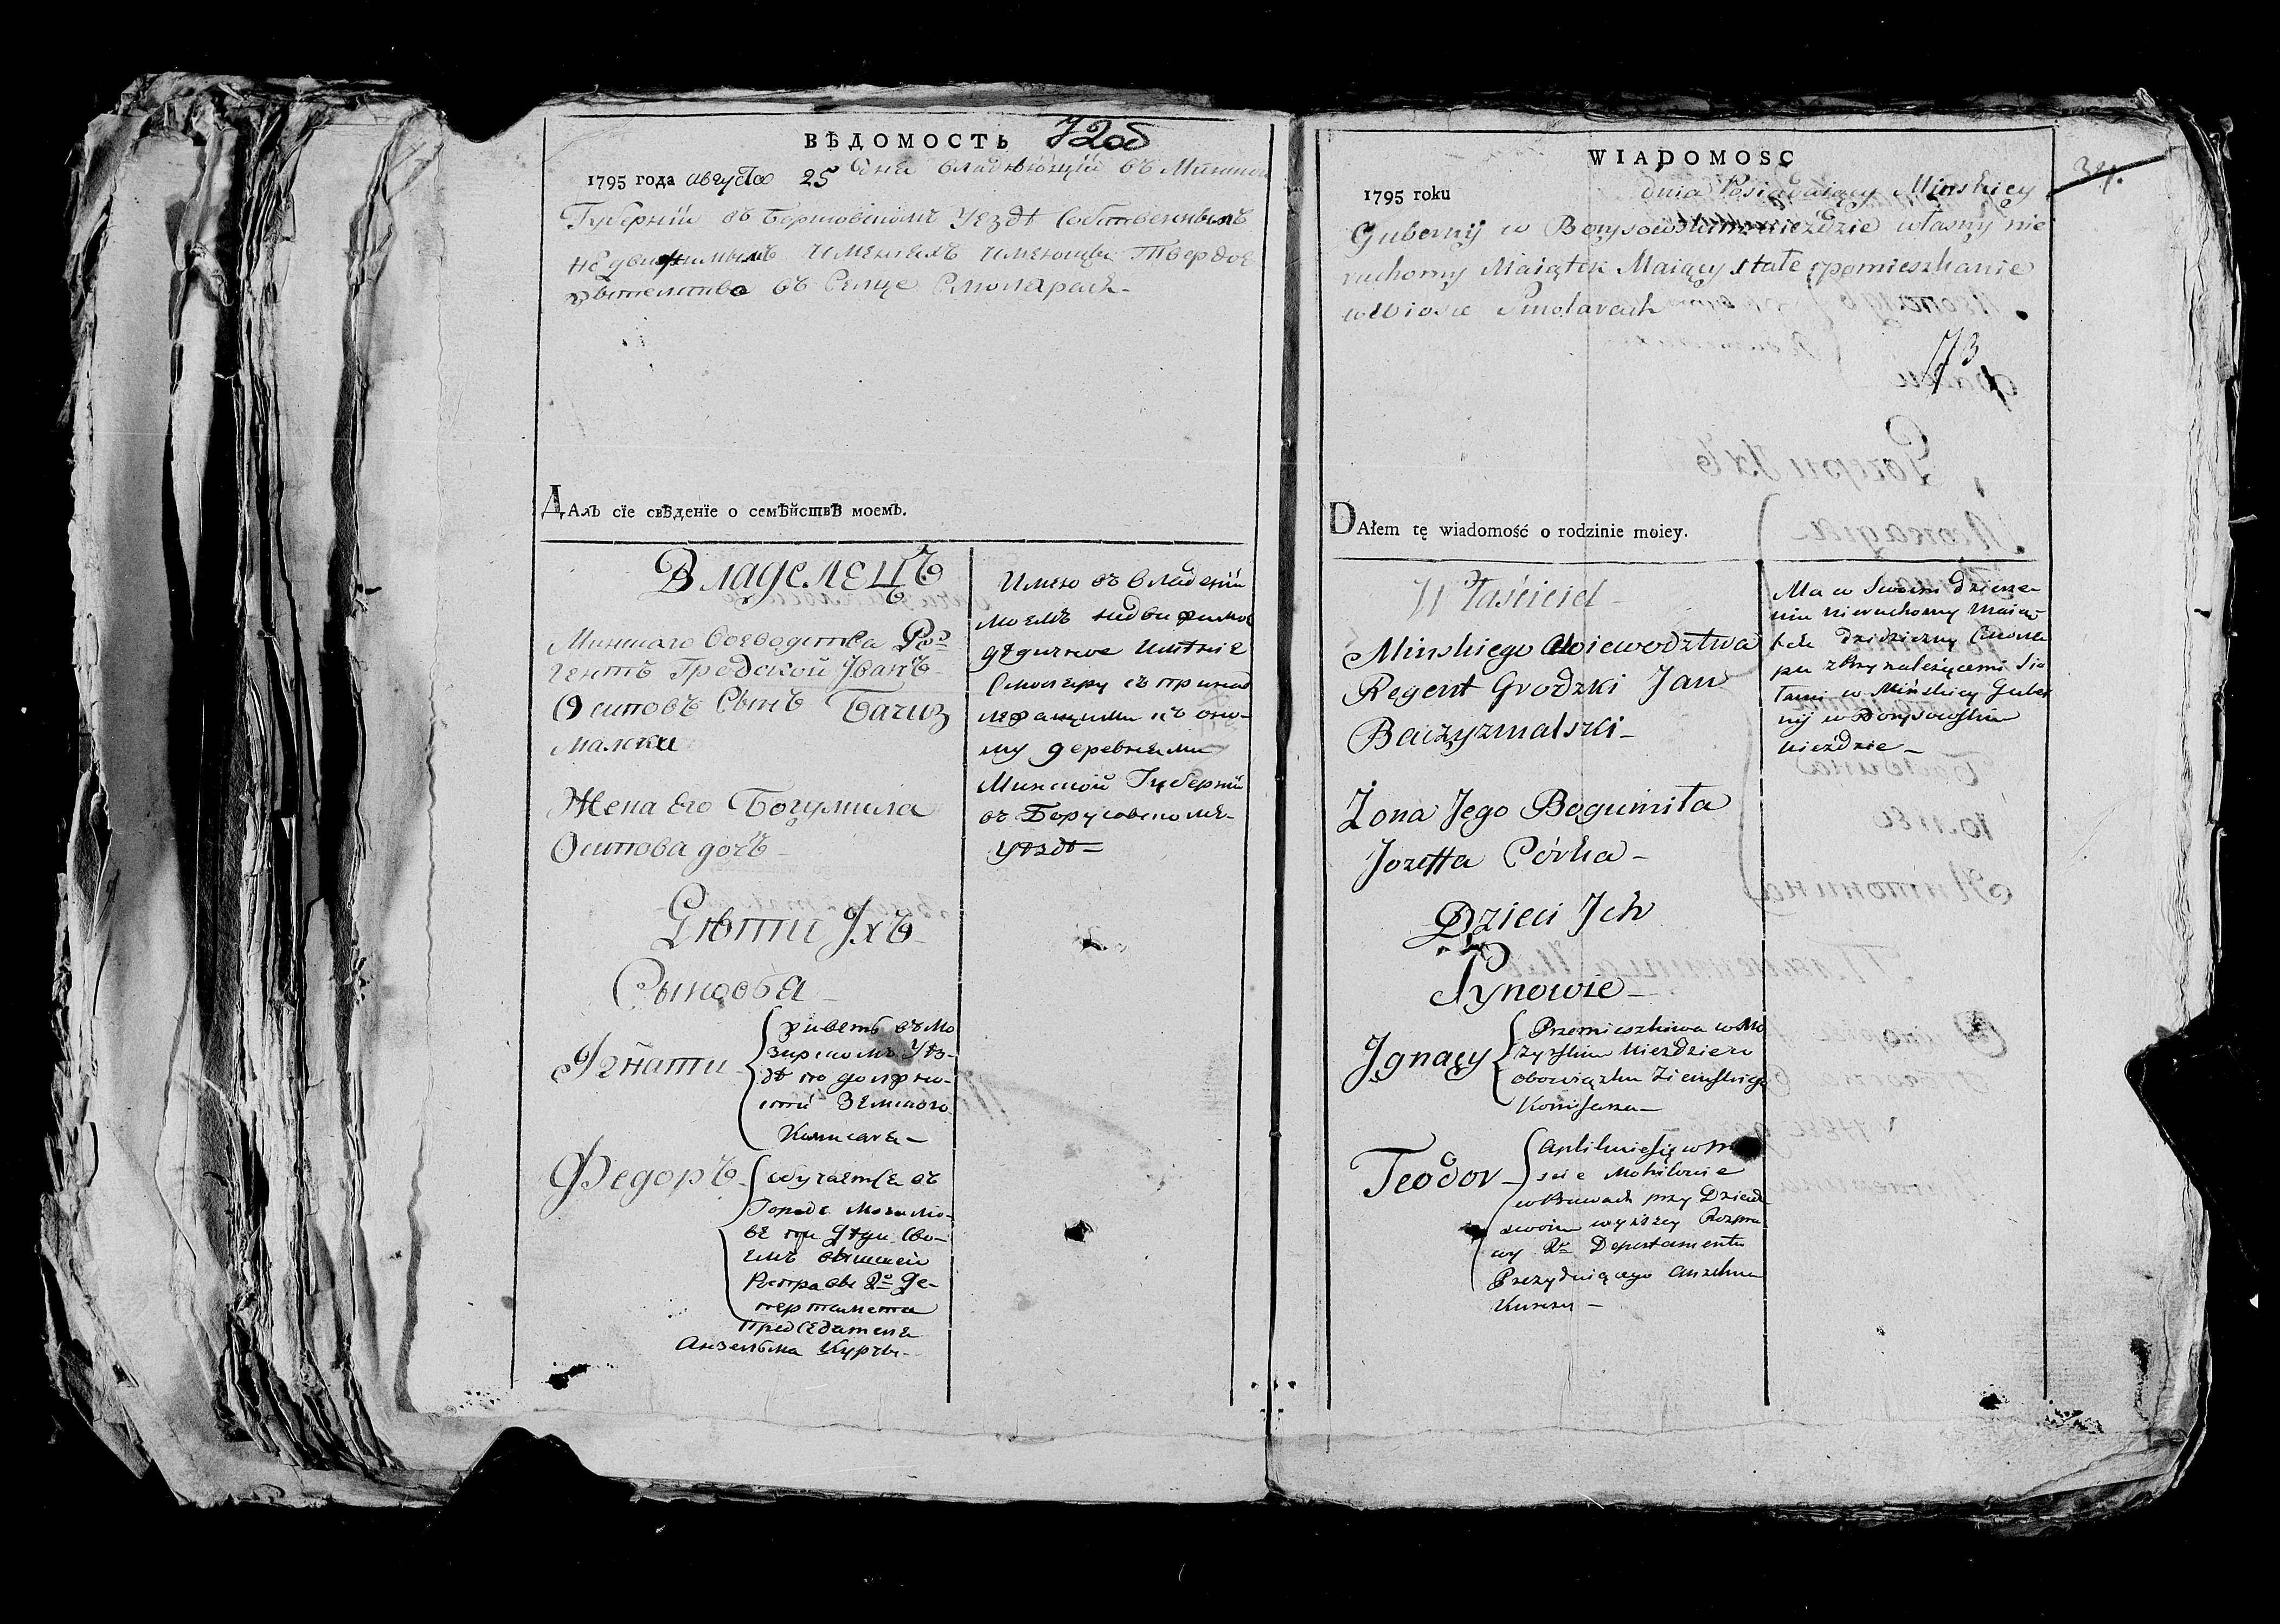 ВѢДОМОСТЬ 72об
1795 года августа 25 дня владѣющїй въ Минской
Губернїи въ Борисовскомъ Уездѣ Собственнымъ
недвижимымъ имениемъ имеющїй твердое
въ Селце Смолярахъ
ДАлъ сїе свѣденїе о семѣйствѣ моемъ.
Владелецъ
Минскаго воеводства Ре-
гентъ Гродской Іванъ
Осиповъ Сынъ Бачиз
малски
Жена его Богумила
Осипова дочъ
Дѣти Ихъ
Сынова
Игнати
живетъ въ Мо
зирскомъ Уез-
дѣ по должно-
сти Земского
Комисара
Федоръ
обучаетса въ
Городе Могилю-
ве при дяди сво-
емъ вышшей
Росправы 2о де-
партамента
председателя
Анзельма Курчы
Имею въ владении
моемъ недвижимое
дедичное имѣние
Смоляры съ принад
лежащими къ оно-
му деревнями
Минской Губернїи
въ Борусовскомъ
уездѣ
WIADOMOSC
34.
1795 roku dnia Posiadaiący Minskiey
Gubernij w Borysowskim uieździe własny nie
ruchomy Maiątek Maiący stałe pomieszkanie
w Wiosce Smolarach
73
DAłem tę wiadomość o rodzinie moiey.
Właściciel
Minskiego Woiewodztwa
Regent Grodzki Jan
Baczyzmalski
Żona Jego Bogumiła
Jozeffa Córka
Dzieci Jch
Synowie
Jgnacy
Przemieszkiwa w Mo
zyrskim Uieździe w
obowiązku Ziemskiego
Komisarza
Teodor
Aplikuie się w Mie
scie Mohilowie
w Prawach przy Dziadu
swoim wyższey Rozpra
wy 2o Departamentu
Prezyduiącego Anzelma
Kurczu
Ma w Swoim dzierze-
niu nieruchomy Maią-
tek Dziedziczny Smola
ry z Przynależącemi Sio
łami w Mińskiey Guber
nij w Borysowskim
Uieździe